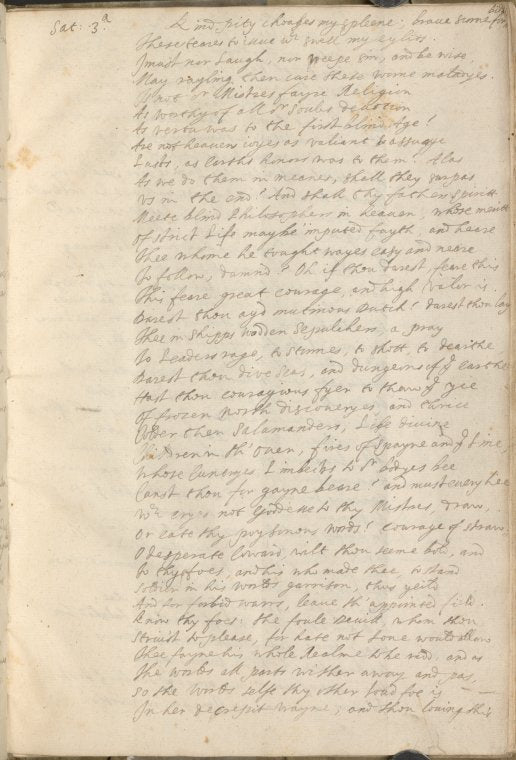 Sat: 3.a
Kind pitty choakes my spleene; braue scorne for
These teares to issue wch swell my eylids.
I must nor Laugh, nor weepe sins, and be wise
May rayling then cure these worne maladyes.
Is not or Mistres fayre Religion
As worthy of all or Soules deuotion
As vertu was to the first blind Age?
Are not heauens ioyes as valiant t'asswage
Lusts, as earths honor was to them? Alas
As we do them in meanes, shall they surpas
vs in the end? And shall thy fathers spirit
Meete blind Philosophers in heauen, whose merit
Of strict Life may be imputed fayth, and heare
Thee whome he tought wayes easy and neere
To follow, damnd? Oh if thou darest, feare this
This feare great courage, and high valor is.
Darest thou ayd mutinous Dutch? darest thou lay
Thee in Shipps wodden Sepulchers, a pray
To Leaders rage, to stormes, to shott, to dearthe
Darest thou diue seas, and dungeons of ye earthe
Hast thou couragious fyer to thaw ye yce
Of frozen North discoueryes, and thrice
Colder then Salamanders, Like diuine
Children in th' ouen, fires of Spayne and ye Line,
Whose Cuntryes Limbecks to or bodyes bee
Canst thou for gayne beare? and must euery hee
Wch cryes not Goddesse to thy Mistres, draw,
Or eate thy poysonous words? courage of straw
O desperate Coward, wilt thou seeme bold, and
To thy foes, and his who made thee to stand
Soldier in his worlds garrison, thus yeild
And for forbid warrs, leaue th' appointed field.
Know thy foes: the foule Deuill, whom thou
Striust to please, for hate not Loue would allow
Thee fayne his whole Realme to be ridd, and as
The worlds all parts wither away and pas,
So the worlds selfe thy other loud foe is
In her decrepit wayne; and thou louing this